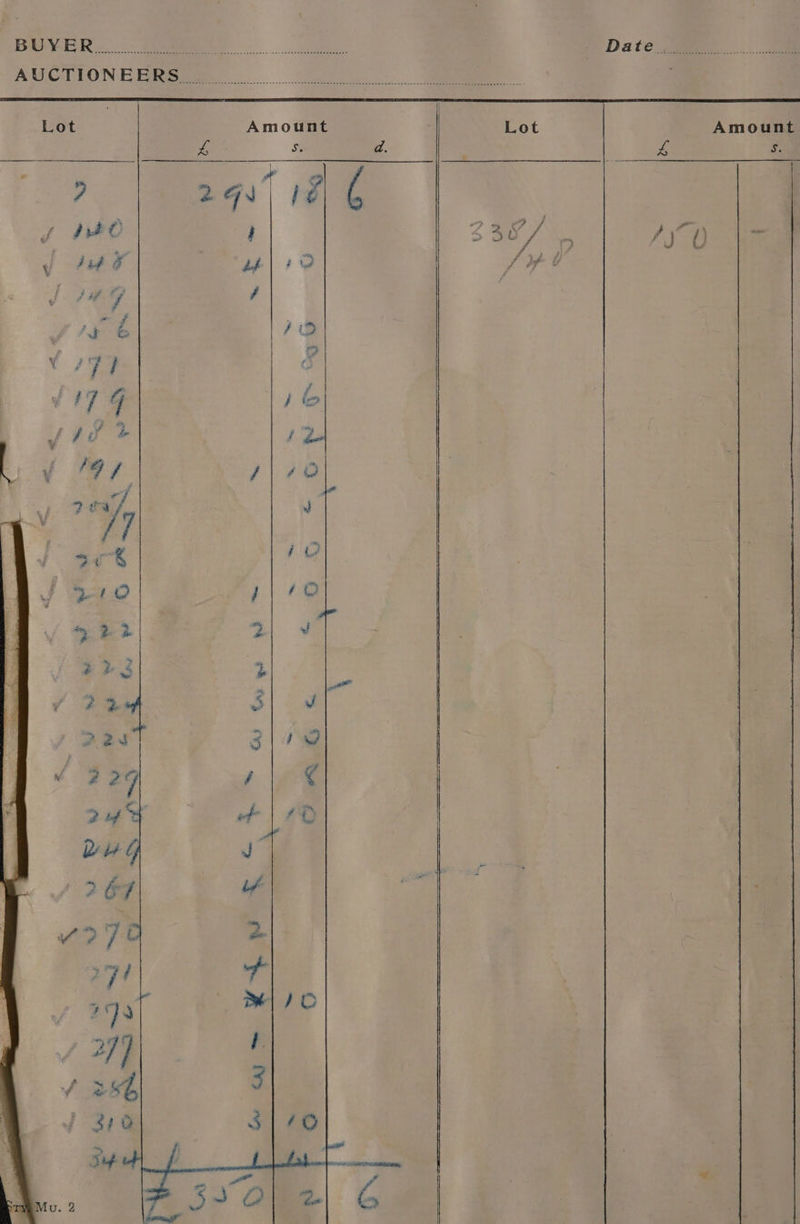 BUYER Date
AUCTIONEERS
Lot Amount Lot Amount
£ s. d. £ s.
295 18 6
140 1 338/ 150 -
148 4 10
149 1
156 10
171 8
179 16
182 12
191 1 10
205/7 5
208 10
210 1 10
222 2 5
223 2
224 3 5
225 3 10
229 1
248 4 10
249 5
267 4
270 2
271 4
295 10
277 1
286 3
310 3 10
344
£ 350 2 6
Mu. 2